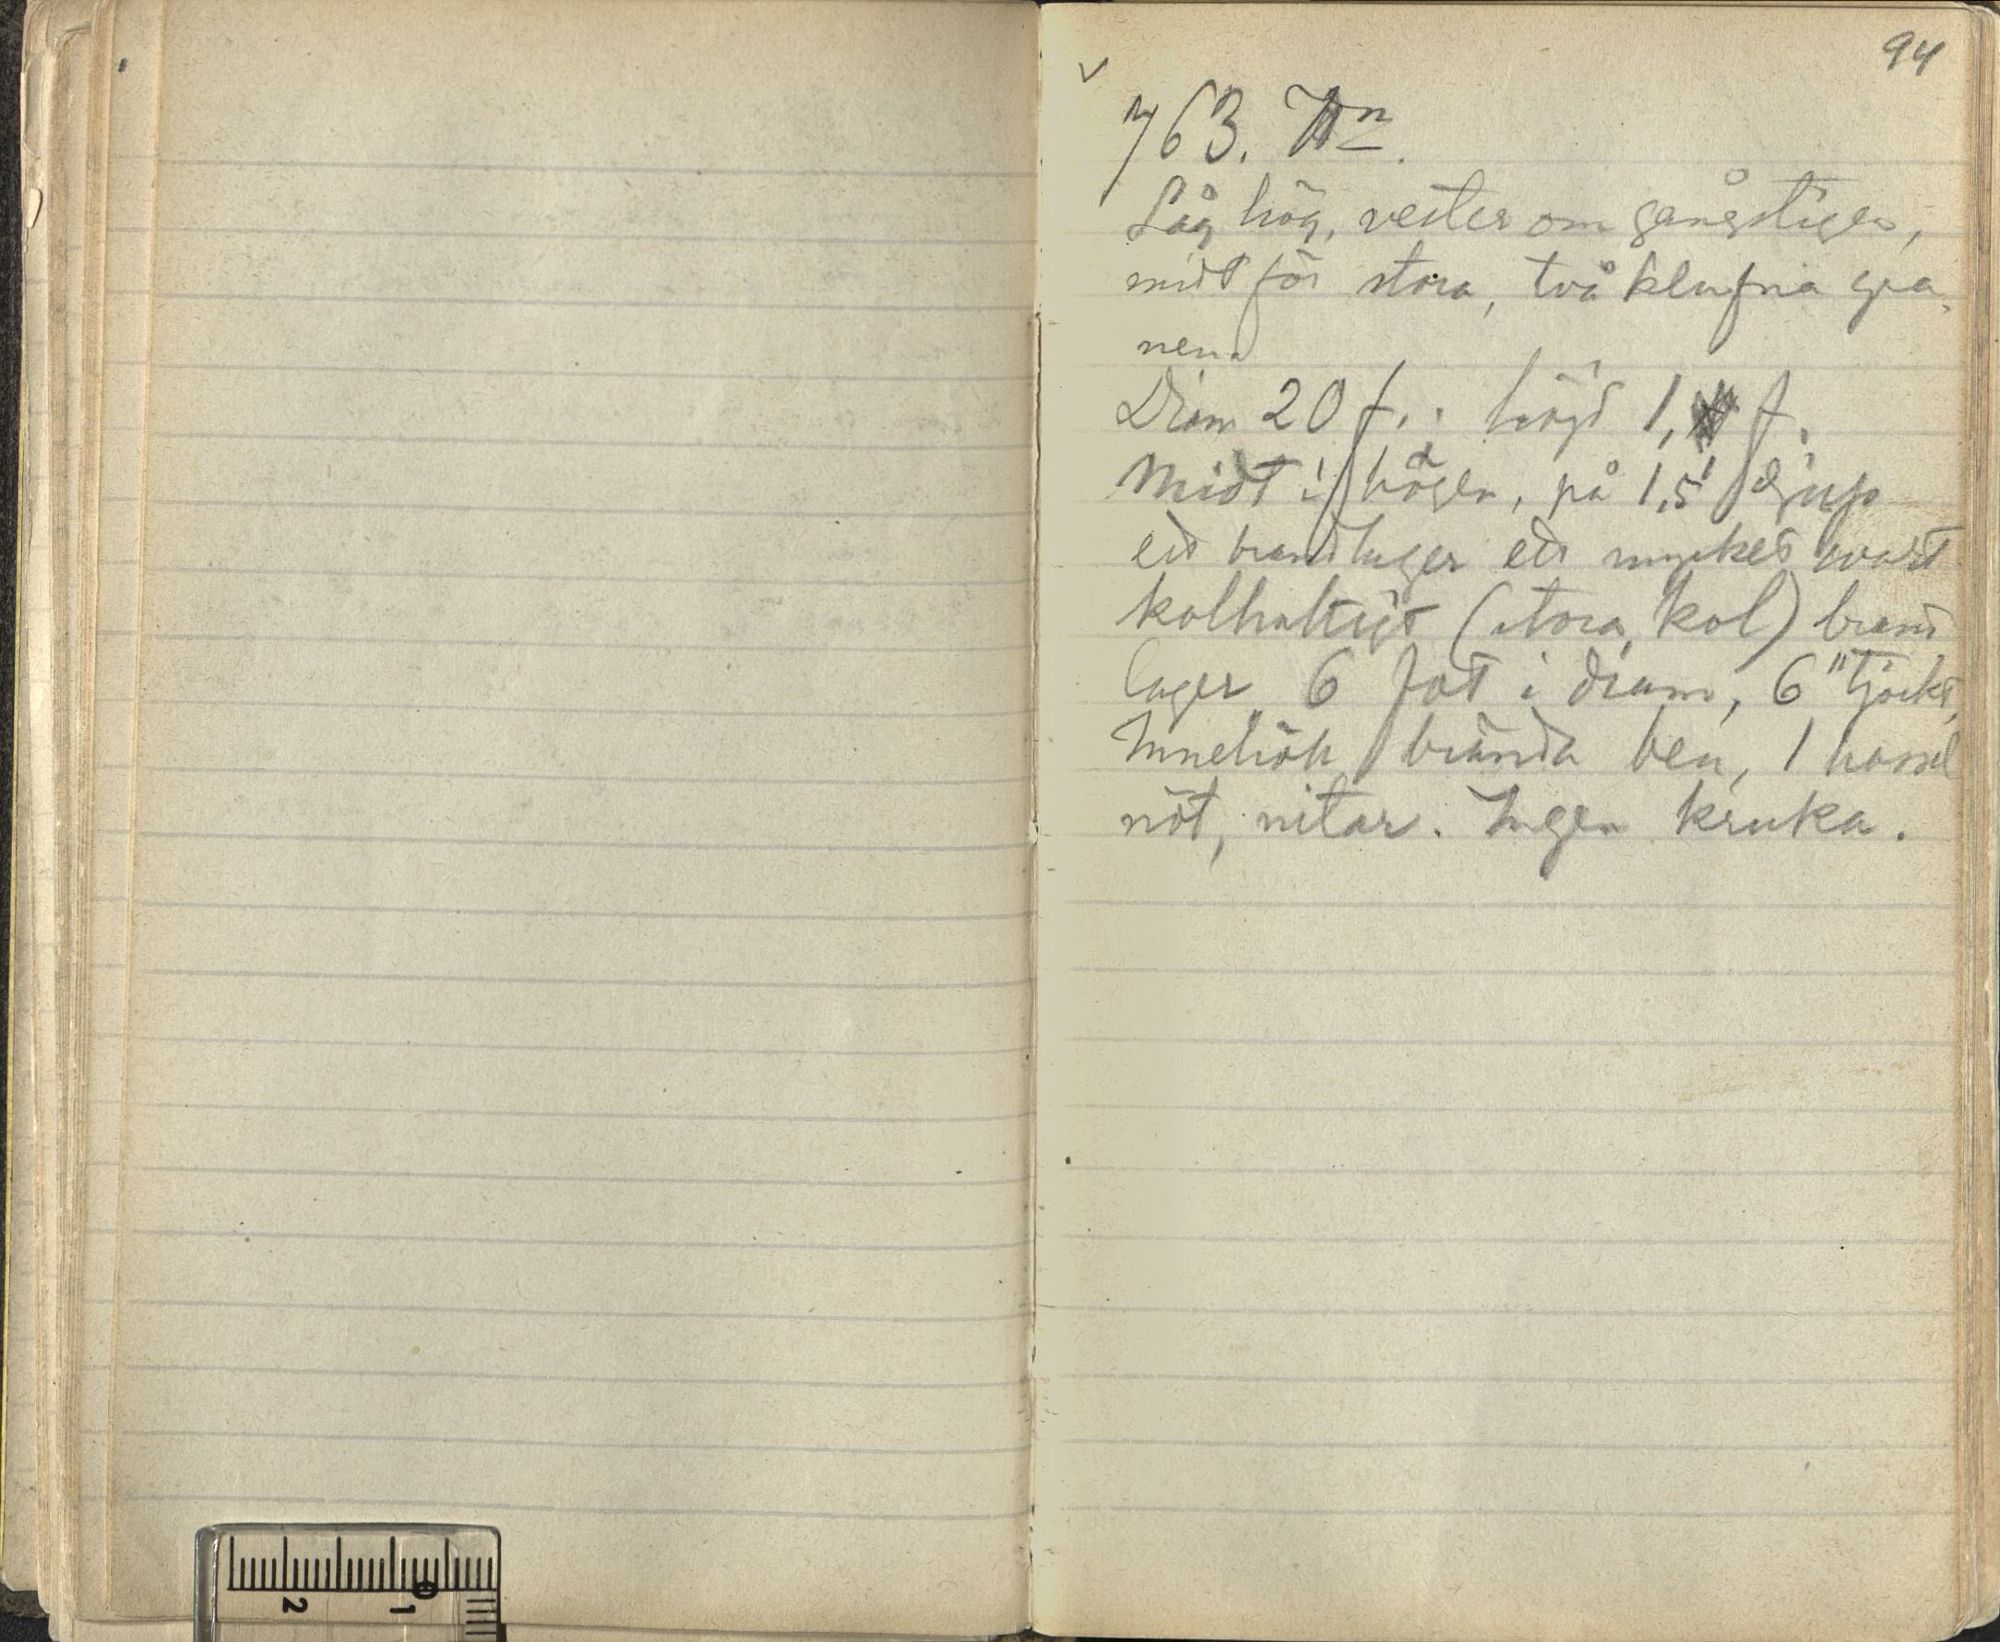 94
✓
763. An.
Låg hög, vester om gångstigen,
midt för stora, två klufna gra-
nen.
Diam 20 f. höjd 1, f.
Midt i högen, på 1,5' djup
ett brandlager ett mycket svart
kolhaltigt (stora kol) brand
lager 6 fot i diam, 6" tjockt,
Innehöll brända ben, 1 hassel
nöt, nitar. Ingen kruka.
2 1 0